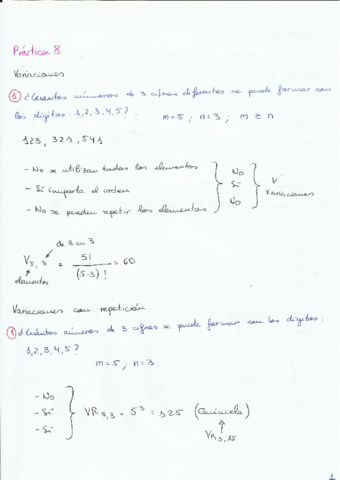 Práctica 8
Variaciones
① ¿Cuántos números de 3 cifras diferentes se puede formar con
los dígitos: 1,2,3,4,5?
m=5 ; n=3 ; m ≥ n
123, 321, 541
- No se utilizan todos los elementos
- Sí importa el orden
- No se pueden repetir los elementos
No
Sí
No
V
Variaciones
de 3 en 3
V5,3 = 5! / (5-3)! = 60
elementos
Variaciones con repetición
① ¿Cuántos números de 3 cifras se puede formar con los dígitos:
1,2,3,4,5?
m=5 ; n=3.
- No
- Sí
- Sí
VR5,3 = 5³ = 125 (Quiniela)
1